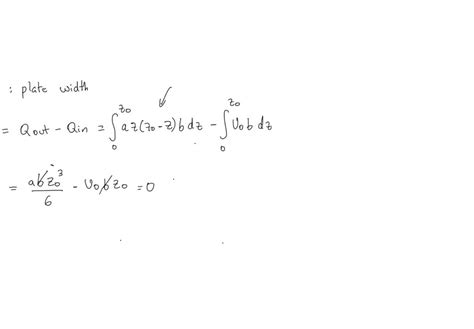 : plate width
= Qout - Qin = ∫₀^z₀ a z (z₀ - z) b dz - ∫₀^z₀ U₀ b dz
= abz₀³/6 - U₀ b z₀ = 0